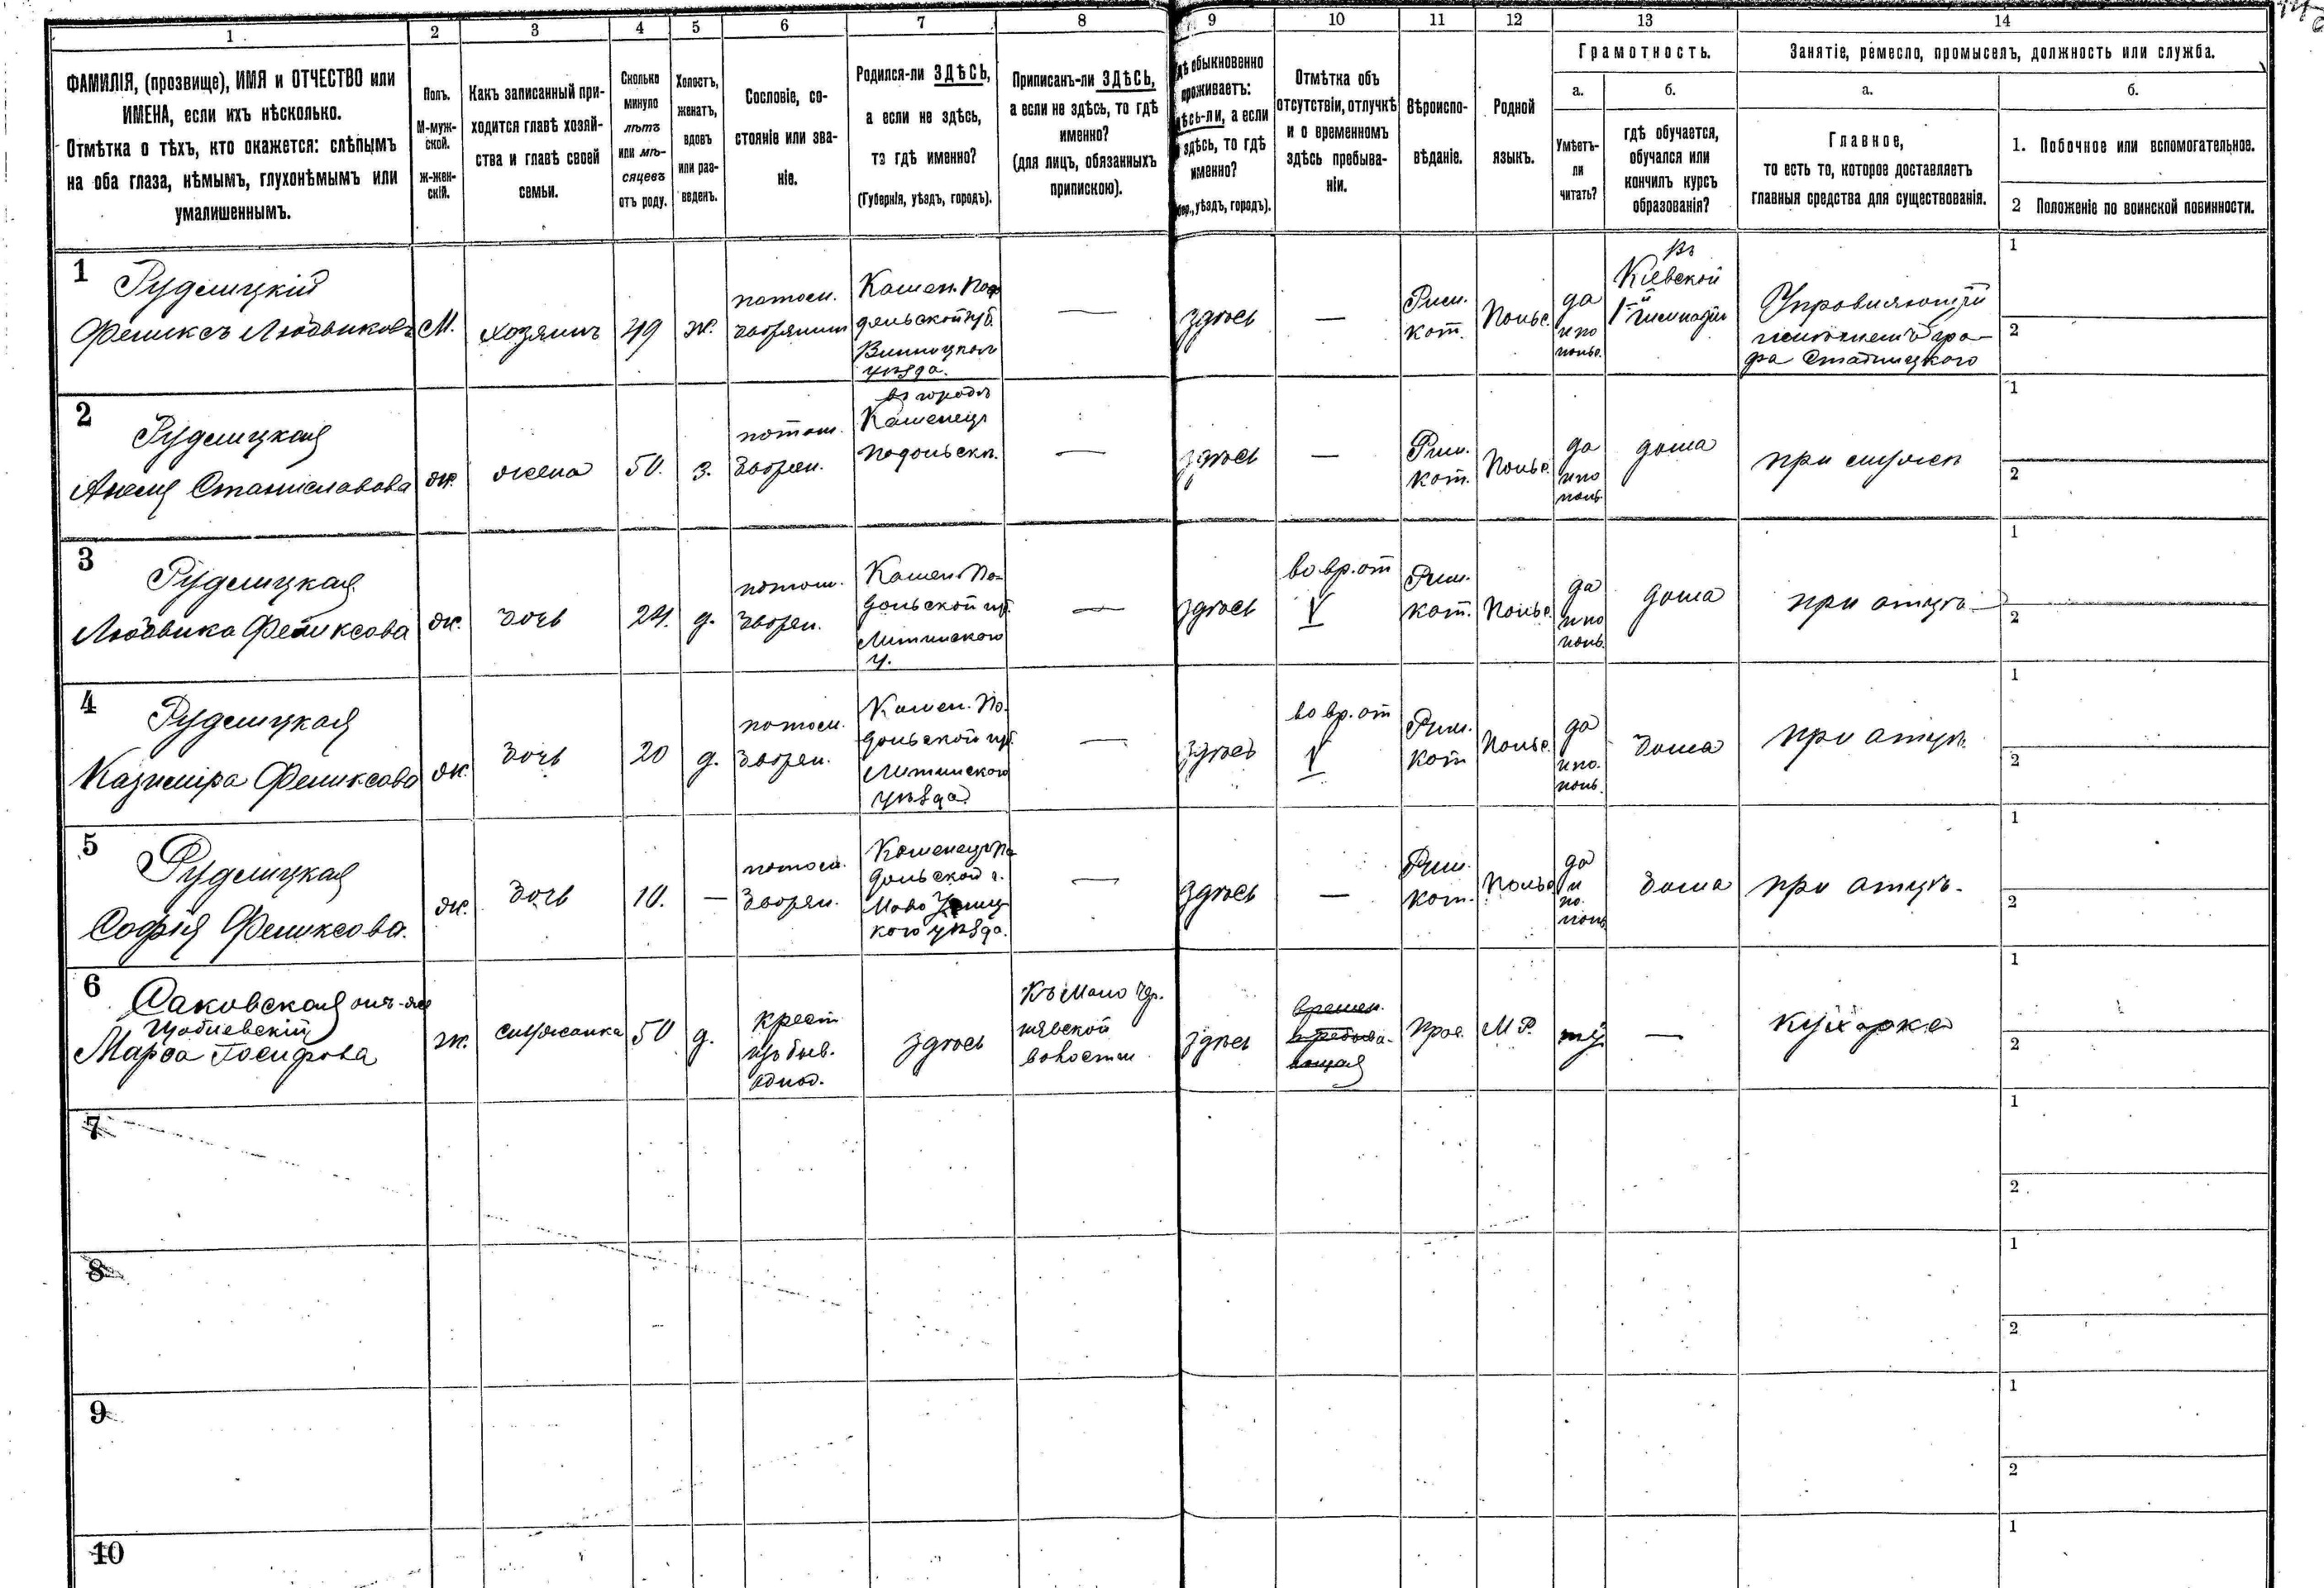 1 2 3 4 5 6 7 8 9 10 11 12 13 14
ФАМИЛІЯ, (прозвище), ИМЯ и ОТЧЕСТВО или
ИМЕНА, если ихъ нѣсколько.
Отмѣтка о тѣхъ, кто окажется: слѣпымъ
на оба глаза, нѣмымъ, глухонѣмымъ или
умалишеннымъ.
Полъ.
М-муж-
ской.
ж-жен-
скій.
Какъ записанный при-
ходится главѣ хозяй-
ства и главѣ своей
семьи.
Сколько
минуло
лѣтъ
или мѣ-
сяцевъ
отъ роду.
Холостъ,
женатъ,
вдовъ
или раз-
веденъ.
Сословіе, со-
стояніе или зва-
ніе.
Родился-ли ЗДѢСЬ,
а если не здѣсь,
то гдѣ именно?
(Губернія, уѣздъ, городъ).
Приписанъ-ли ЗДѢСЬ,
а если не здѣсь, то гдѣ
именно?
(для лицъ, обязанныхъ
припискою).
обыкновенно
проживаетъ:
а если
здѣсь, то гдѣ
именно?
уѣздъ, городъ).
Отмѣтка объ
отсутствіи, отлучкѣ
и о временномъ
здѣсь пребыва-
ніи.
Вѣроиспо-
вѣданіе.
Родной
языкъ.
Грамотность.
а.
Умѣетъ-
ли
читать?
б.
гдѣ обучается,
обучался или
кончилъ курсъ
образованія?
Занятіе, ремесло, промыселъ, должность или служба.
а.
Главное,
то есть то, которое доставляетъ
главныя средства для существованія.
б.
1. Побочное или вспомогательное.
2 Положеніе по воинской повинности.
1
Рудлицкій
Феликсъ Людвиковъ
М.
хозяинъ
49
ж.
потом.
дворянин
Камен. По
дольской губ.
Винницком
уѣзда.
—
здѣсь
—
Рим.
кат.
Польс.
да
и по
польс.
въ
Кіевской
1й гимназіи
Управляющій
имѣніемъ гра-
фа Стадницкого
1
2
2
Рудлицкая
Анеля Станиславова
ж.
жена
50.
з.
потом.
дворян.
въ городѣ
Каменецъ
Подольск.
—
здѣсь
—
Рим.
кат.
Польс.
да
и по
поль.
дома
при мужѣ
1
2
3
Рудлицкая
Людвика Феликсова
ж.
дочь
24.
д.
потом.
дворян.
Камен. По-
дольской губ.
Литинского
у.
—
здѣсь
во вр. от
V
Рим.
кат.
Польс.
да
и по
поль.
дома
при отцѣ
1
2
4
Рудлицкая
Казиміра Феликсова
ж.
дочь
20
д.
потом.
дворян.
Камен. По-
дольской губ.
Литинского
уѣзда
—
здѣсь
во вр. от
V
Рим.
кат
Польс.
да
и по
поль.
дома
при отцѣ.
1
2
5
Рудлицкая
Софія Феликсова.
ж.
дочь
10.
—
потом.
дворян.
Каменецъ По
дольской г.
Ново Ушиц
кого уѣзда.
—
здѣсь
—
Рим.
кат.
Польс
да
и
по
поль
дома
при отцѣ.
1
2
6
Саковская она-же
Марфа Іосифова
ж.
служанка
50
д.
крест
изъ быв.
однод.
здѣсь
Къ Мало Чер.
волости
здѣсь
времен.
пребыва-
ющая
Прав.
М. Р.
—
кухарка
1
2
7
1
2
8
1
2
9
1
2
10
1